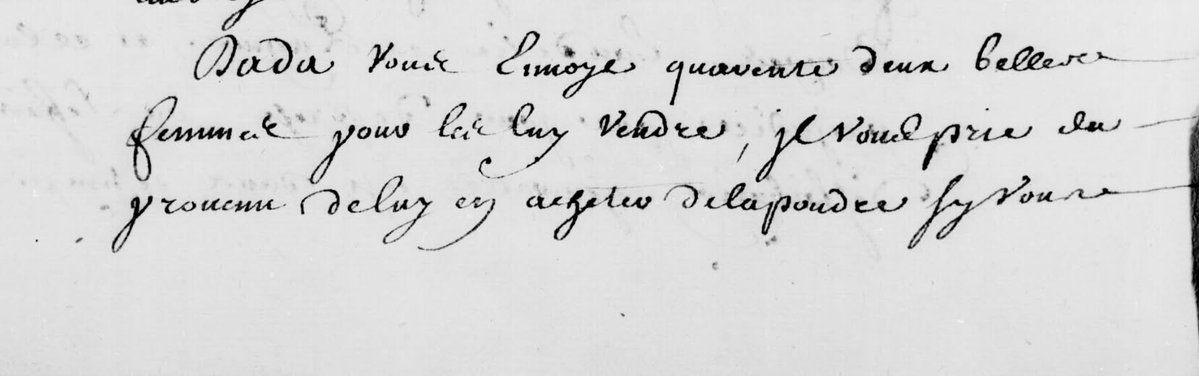 Dada vous Envoye quarente deux belles
femmes pour les luy vendre, jl vous prie du
provenu de luy en acheter de la poudre sy vous